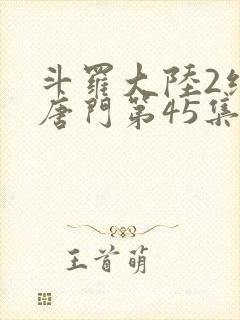 斗羅大陸2
唐門第45集
王首萌